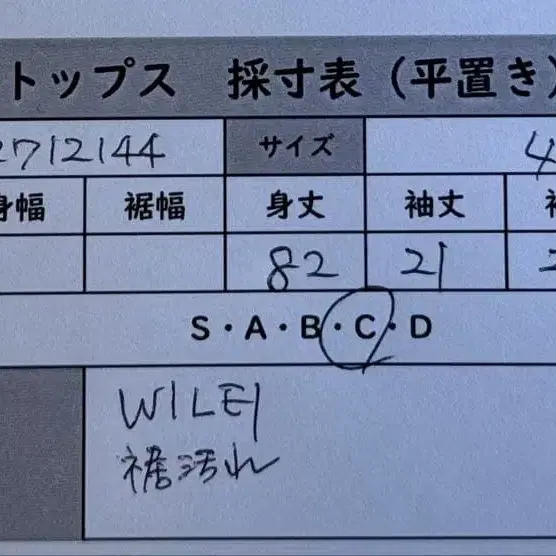 トップス 採寸表（平置き）
2712144 サイズ 4
身幅 裾幅 身丈 袖丈
82 21
S・A・B・C・D
裾汚れ